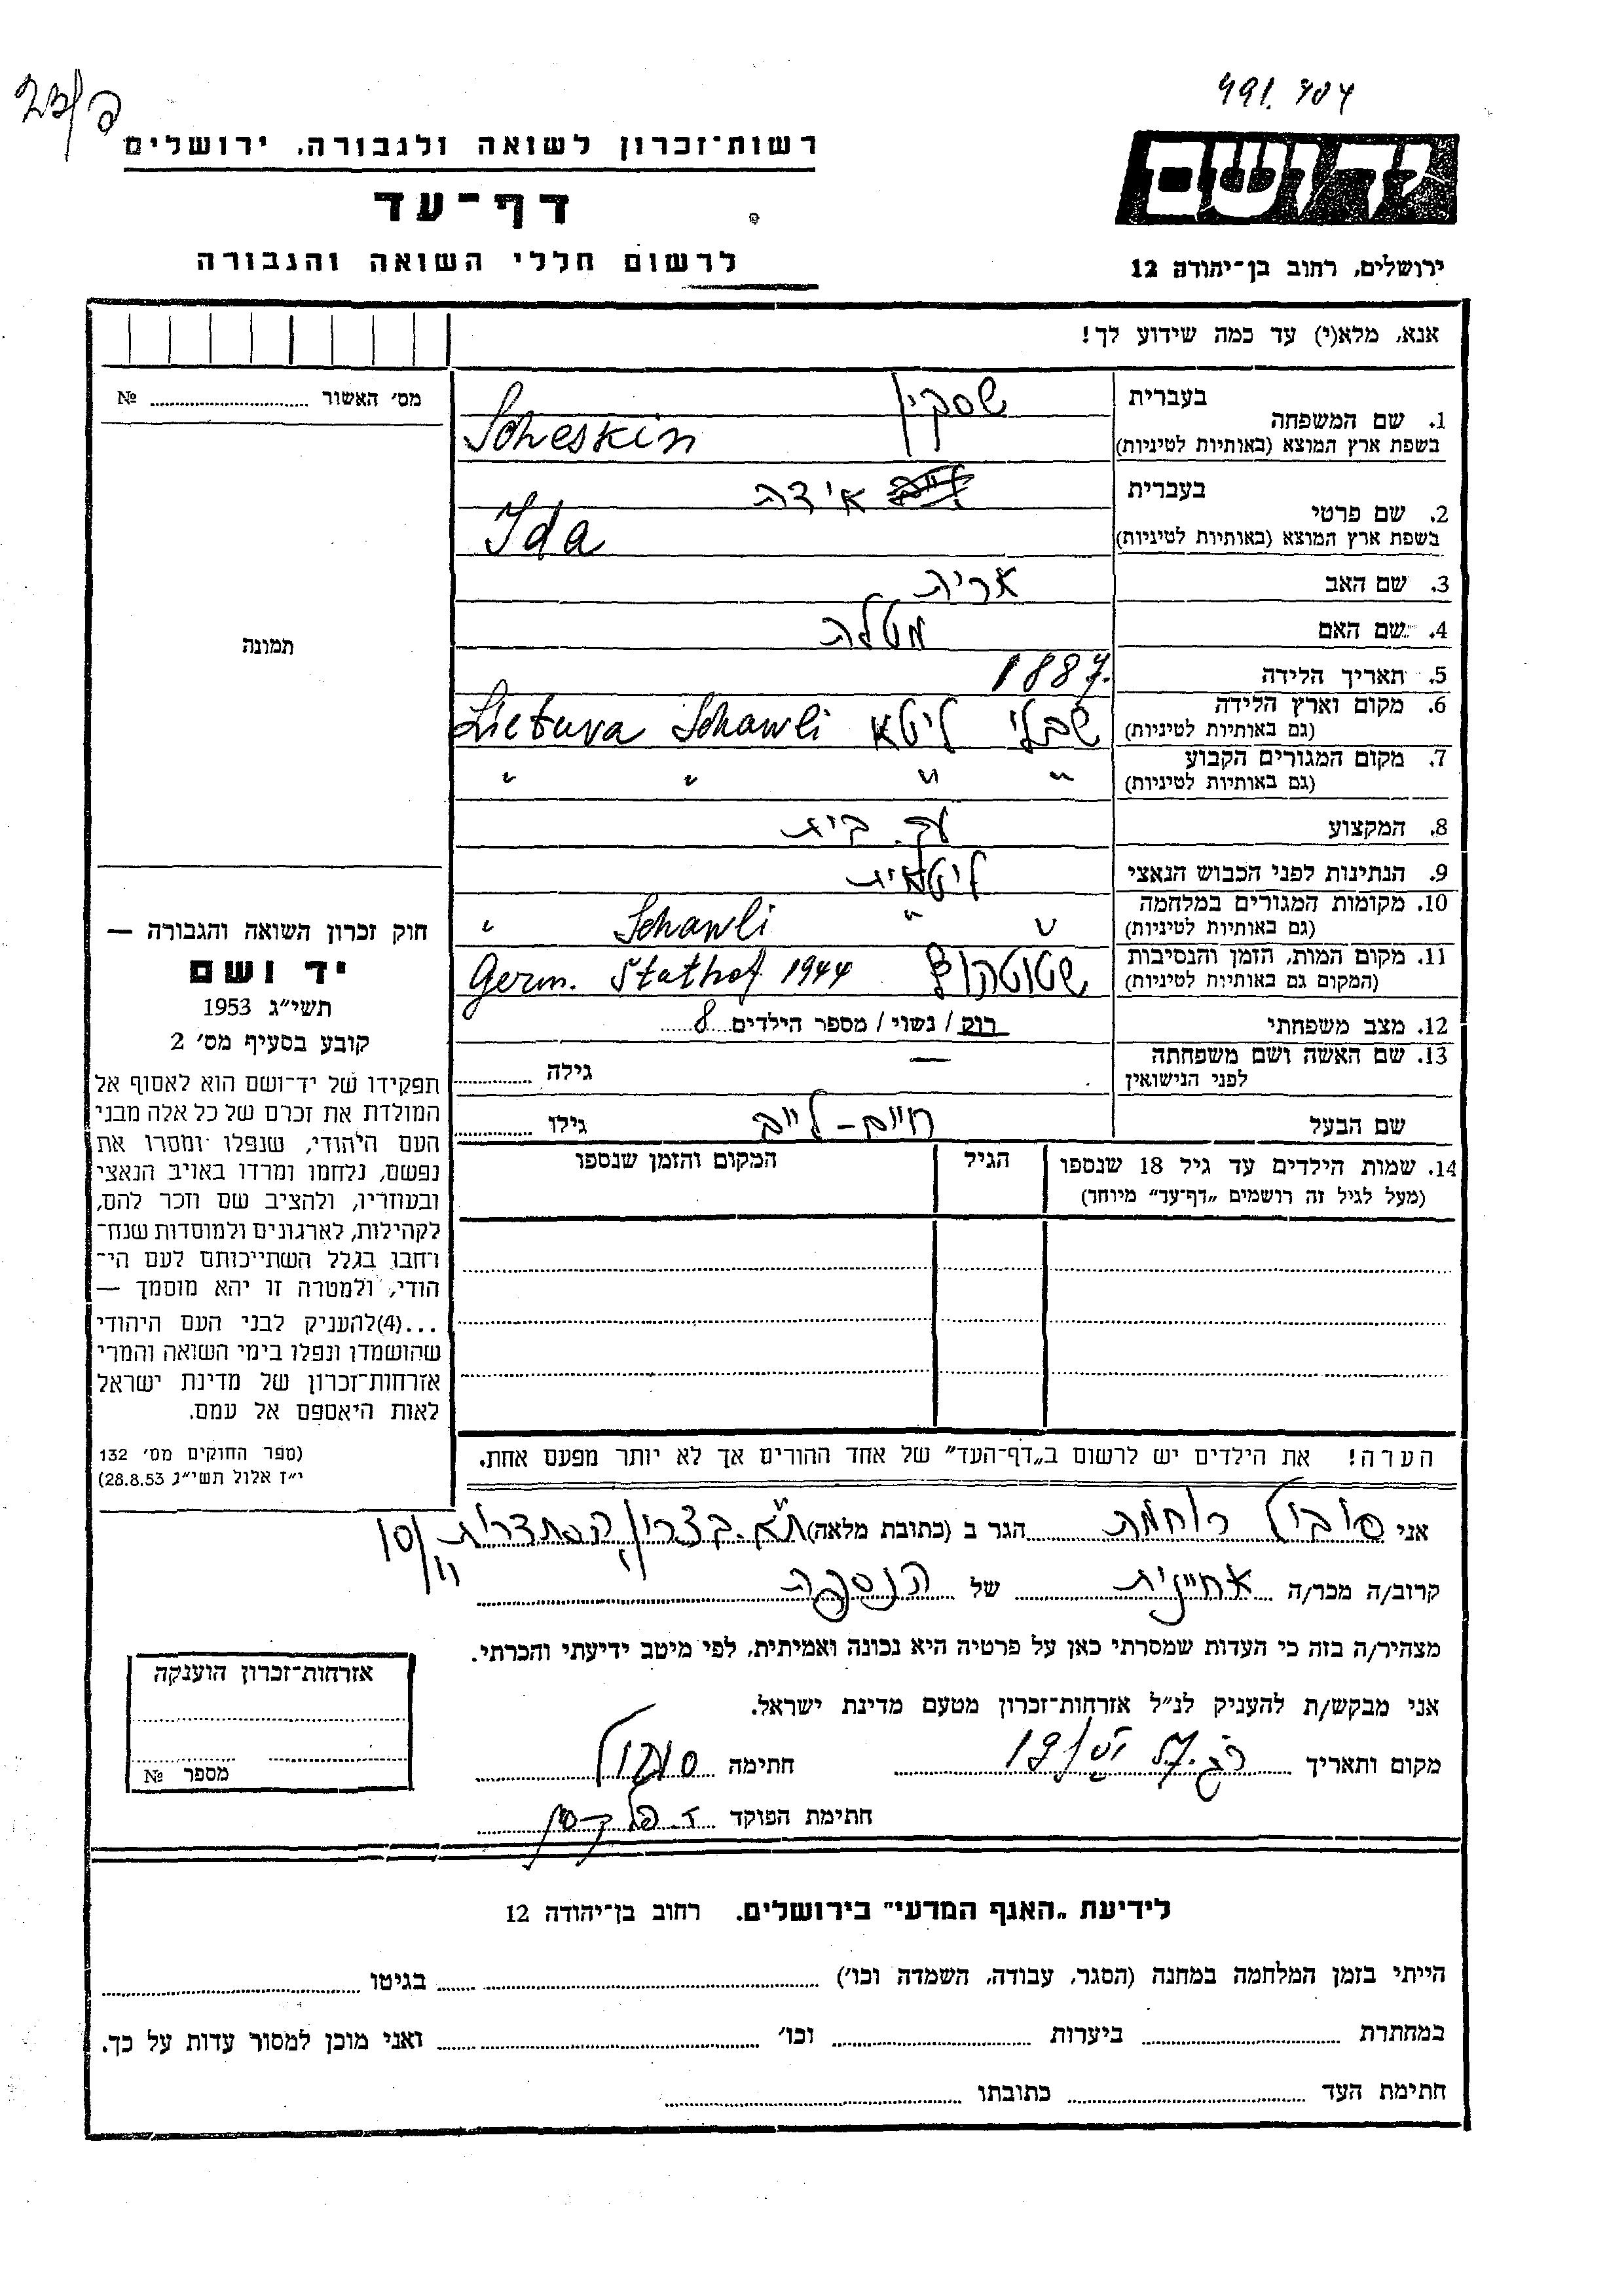 491.704
רשות־זכרון לשואה ולגבורה, ירושלים
דף־עד
לרשום חללי השואה והגבורה
יד ושם
ירושלים, רחוב בן־יהודה 12
אנא, מלא(י) עד כמה שידוע לך!
מס׳ האשור № 
תמונה
חוק זכרון השואה והגבורה —
יד ושם
תשי״ג 1953
קובע בסעיף מס׳ 2
תפקידו של יד־ושם הוא לאסוף אל
המולדת את זכרם של כל אלה מבני
העם היהודי, שנפלו ומסרו את
נפשם, נלחמו ומרדו באויב הנאצי
ובעוזריו, ולהציב שם וזכר להם,
לקהילות, לארגונים ולמוסדות שנח־
רחבו בגלל השתייכותם לעם הי־
הודי, ולמטרה זו יהא מוסמך —
...(4)להעניק לבני העם היהודי
שהושמדו ונפלו בימי השואה והמרי
אזרחות־זכרון של מדינת ישראל
לאות היאספם אל עמם.
(ספר החוקים מס׳ 132
י״ז אלול תשי״ג 28.8.53)
1. שם המשפחה בעברית שסקין
בשפת ארץ המוצא (באותיות לטיניות) Scheskin
2. שם פרטי בעברית אידה
בשפת ארץ המוצא (באותיות לטיניות) Ida
3. שם האב אריה
4. שם האם מטלה
5. תאריך הלידה 1887.
6. מקום וארץ הלידה (גם באותיות לטיניות) שבלי ליטא Schawli Lietuva
7. מקום המגורים הקבוע (גם באותיות לטיניות) " " " "
8. המקצוע עק. בית
9. הנתינות לפני הכבוש הנאצי ליטאית
10. מקומות המגורים במלחמה (גם באותיות לטיניות) " " Schawli "
11. מקום המות, הזמן והנסיבות (המקום גם באותיות לטיניות) שטוטהוף 1944 Stathof Germ.
12. מצב משפחתי רוק / נשוי / מספר הילדים 8
13. שם האשה ושם משפחתה לפני הנישואין — גילה
שם הבעל חיים-לייב גילו
14. שמות הילדים עד גיל 18 שנספו (מעל לגיל זה רושמים „דף־עד״ מיוחד) הגיל המקום והזמן שנספו
הערה! את הילדים יש לרשום ב„דף־העד״ של אחד ההורים אך לא יותר מפעם אחת.
אני סוביל נחמה הגר ב (כתובת מלאה) ת״א. בצרון, ההסתדרות 10/
קרוב/ה מכר/ה אחיינית של הנספה
מצהיר/ה בזה כי העדות שמסרתי כאן על פרטיה היא נכונה ואמיתית, לפי מיטב ידיעתי והכרתי.
אני מבקש/ת להעניק לנ״ל אזרחות־זכרון מטעם מדינת ישראל.
מקום ותאריך חתימה סוביל
חתימת הפוקד
אזרחות־זכרון הוענקה
מספר №
לידיעת „האגף המדעי״ בירושלים. רחוב בן־יהודה 12
הייתי בזמן המלחמה במחנה (הסגר, עבודה, השמדה וכו׳) בגיטו
במחתרת ביערות וכו׳ ואני מוכן למסור עדות על כך.
חתימת העד כתובתו